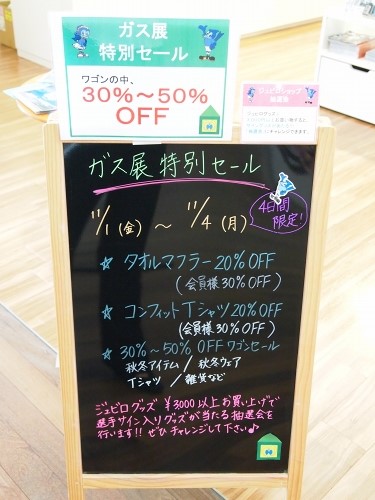 ガス展
特別セール
ワゴンの中、
30%～50%
OFF
ジュビロショップ
抽選会
ガス展 特別セール
11/1(金) ～ 11/4(月)
4日間
限定!
☆ タオルマフラー 20%OFF
(会員様 30%OFF)
☆ コンフィットTシャツ 20%OFF
(会員様 30%OFF)
☆ 30%～50% OFF ワゴンセール
秋冬アイテム / 秋冬ウェア
Tシャツ / 雑貨など
ジュビログッズ ¥3,000以上お買い上げで
選手サイン入りグッズが当たる抽選会を
行います!! ぜひチャレンジして下さい♪